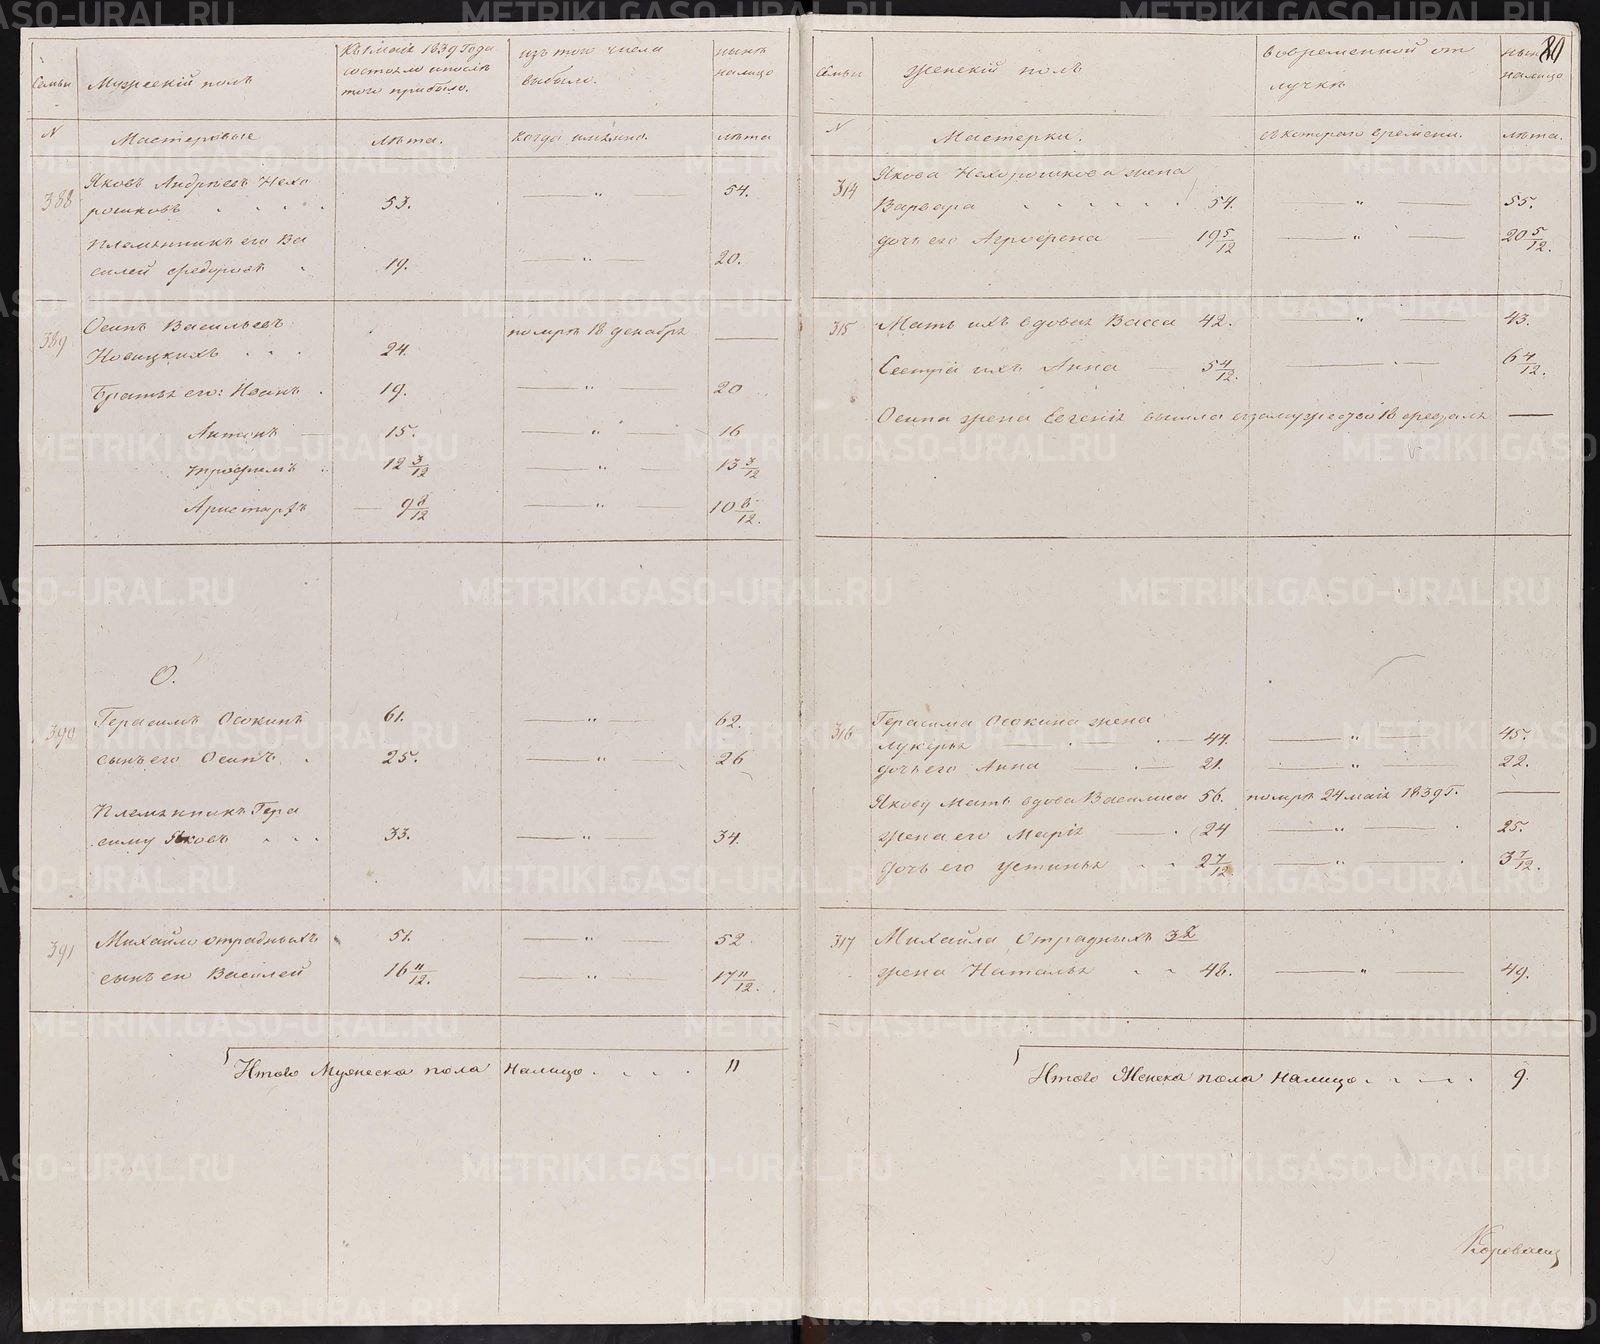 Семьи
Мужескій полъ
Къ 1 маія 1839 Года
состояло и послѣ
того прибыло.
изъ того числа
выбыло.
нынѣ
налицо
N
Мастеровые
лѣта.
когда имянно.
лѣта
388
Яковъ Андреевъ Нехо
рошковъ 53. — " — 54.
племянникъ его Ва
силей Федоровъ 19. — " — 20.
389
Осипъ Васильевъ
Новицкихъ 24. помре 18 декабря —
Братья его: Иванъ 19. — " — 20
Антонъ — 15. — " — 16
Трофимъ 12 3/12 — " — 13 3/12
Аристархъ — 9 8/12 — " — 10 8/12.
О.
390
Герасимъ Осокинъ 61. — " — 62.
сынъ его Осипъ 25. — " — 26
Племянникъ Гера
симу Яковъ 33. — " — 34.
391
Михайло Отрадныхъ 51. — " — 52
сынъ ево Василей 16 11/12. — " — 17 11/12.
Итого Мужеска пола налицо . . . . 11
80
Семьи
женскій полъ
во временной от
лучкѣ
нынѣ
налицо
N
Мастерки.
съ котораго времени.
лѣта.
314
Якова Нехорошкова жена
Варвара 54. — " — 55.
дочь его Агрофена — 19 5/12 — " — 20 5/12.
315
Мать ихъ вдова Васса 42. — " — 43.
Сестра ихъ Анна 5 4/12. — " — 6 4/12.
Осипа жена Евгенія вышла в замужество 18 февраля —
316
Герасима Осокина жена
Лукерья — 44. — " — 45.
дочь его Анна — 21. — " — 22.
Якову Мать вдова Василиса 56. помре 24 маія 1839 г. —
жена его Марія — 24 — " — 25.
дочь его Устинья 2 7/12 — " — 3 7/12.
317
Михайла Отрадныхъ 3 2
жена Наталья 48. — " — 49.
Итого Женска пола налицо . . — . 9.